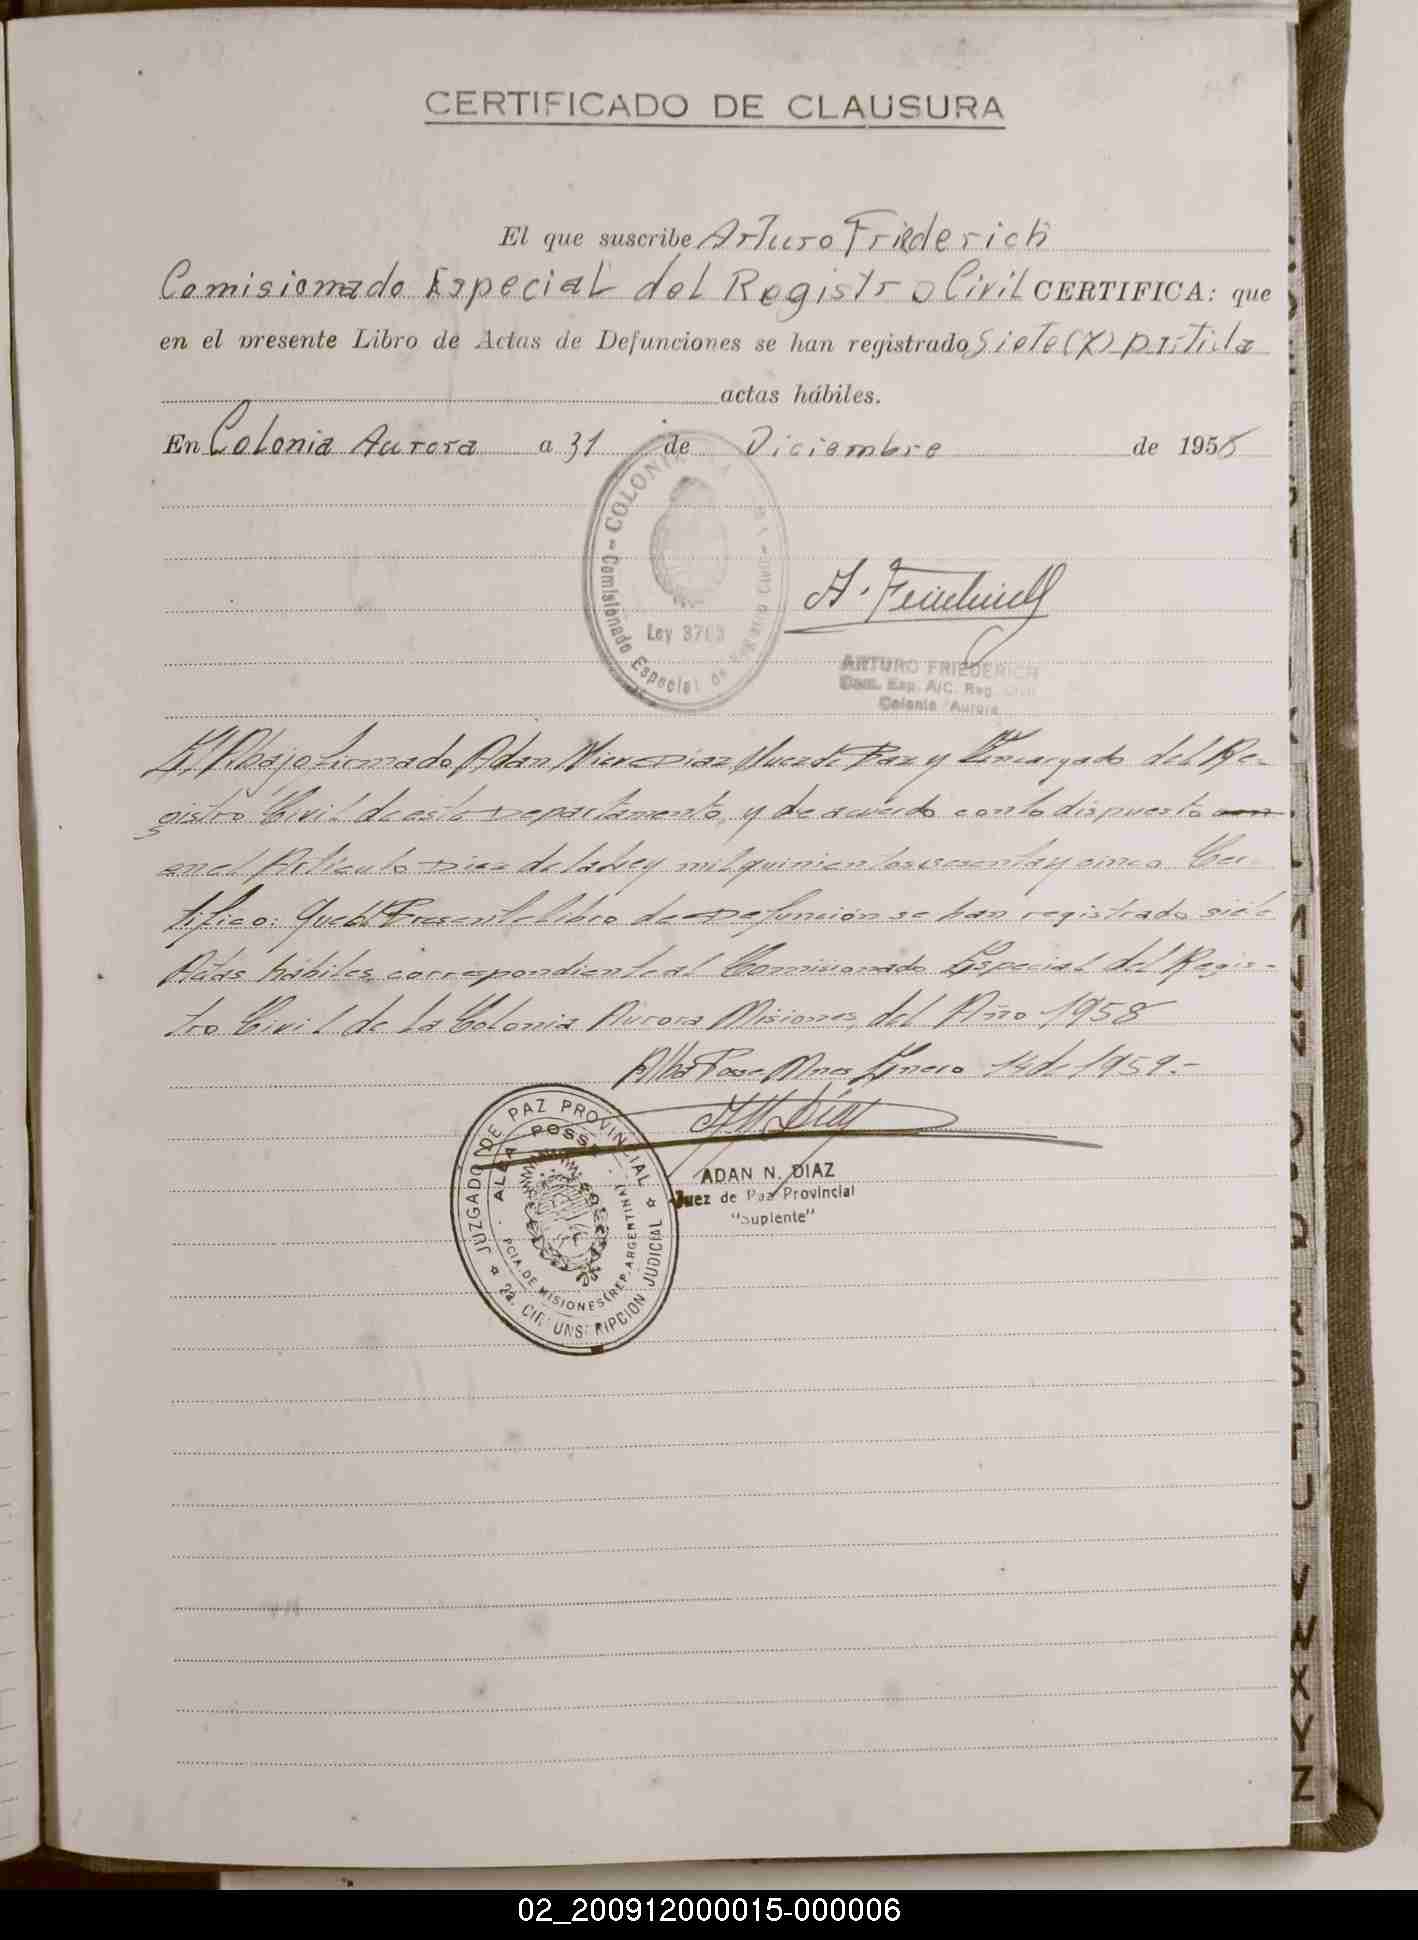 CERTIFICADO DE CLAUSURA
El que suscribe Arturo Friederich
Comisionado Especial del Registro Civil CERTIFICA: que
en el presente Libro de Actas de Defunciones se han registrado Siete (7)
actas hábiles.
En Colonia Aurora a 31 de Diciembre de 1958
COLONIA
Comisionado Especial de Registro Civil
Ley 3703
A. Friederich
ARTURO FRIEDERICH
Com. Esp. A/C. Reg. Civil
Colonia Aurora
El Abajo firmado Adan Diaz Juez de Paz y Encargado del Re-
gistro Civil de este Departamento, y de acuerdo con lo dispuesto con
en el Articulo Diez de la Ley mil quinientos sesenta y cinco Cer-
tifico: Que el Presente libro de Defunción se han registrado siete
Actas hábiles correspondiente al Comisionado Especial del Regis-
tro Civil de la Colonia Aurora Misiones, del Año 1958
Alba Posse Mnes Enero 14 de 1959.-
JUZGADO DE PAZ PROVINCIAL
ALBA POSSE
PCIA. DE MISIONES (REP. ARGENTINA)
2a. CIRCUNSCRIPCION JUDICIAL
ADAN N. DIAZ
Juez de Paz Provincial
"Suplente"
R
S
T
U
V
W
X
Y
Z
02_200912000015-000006